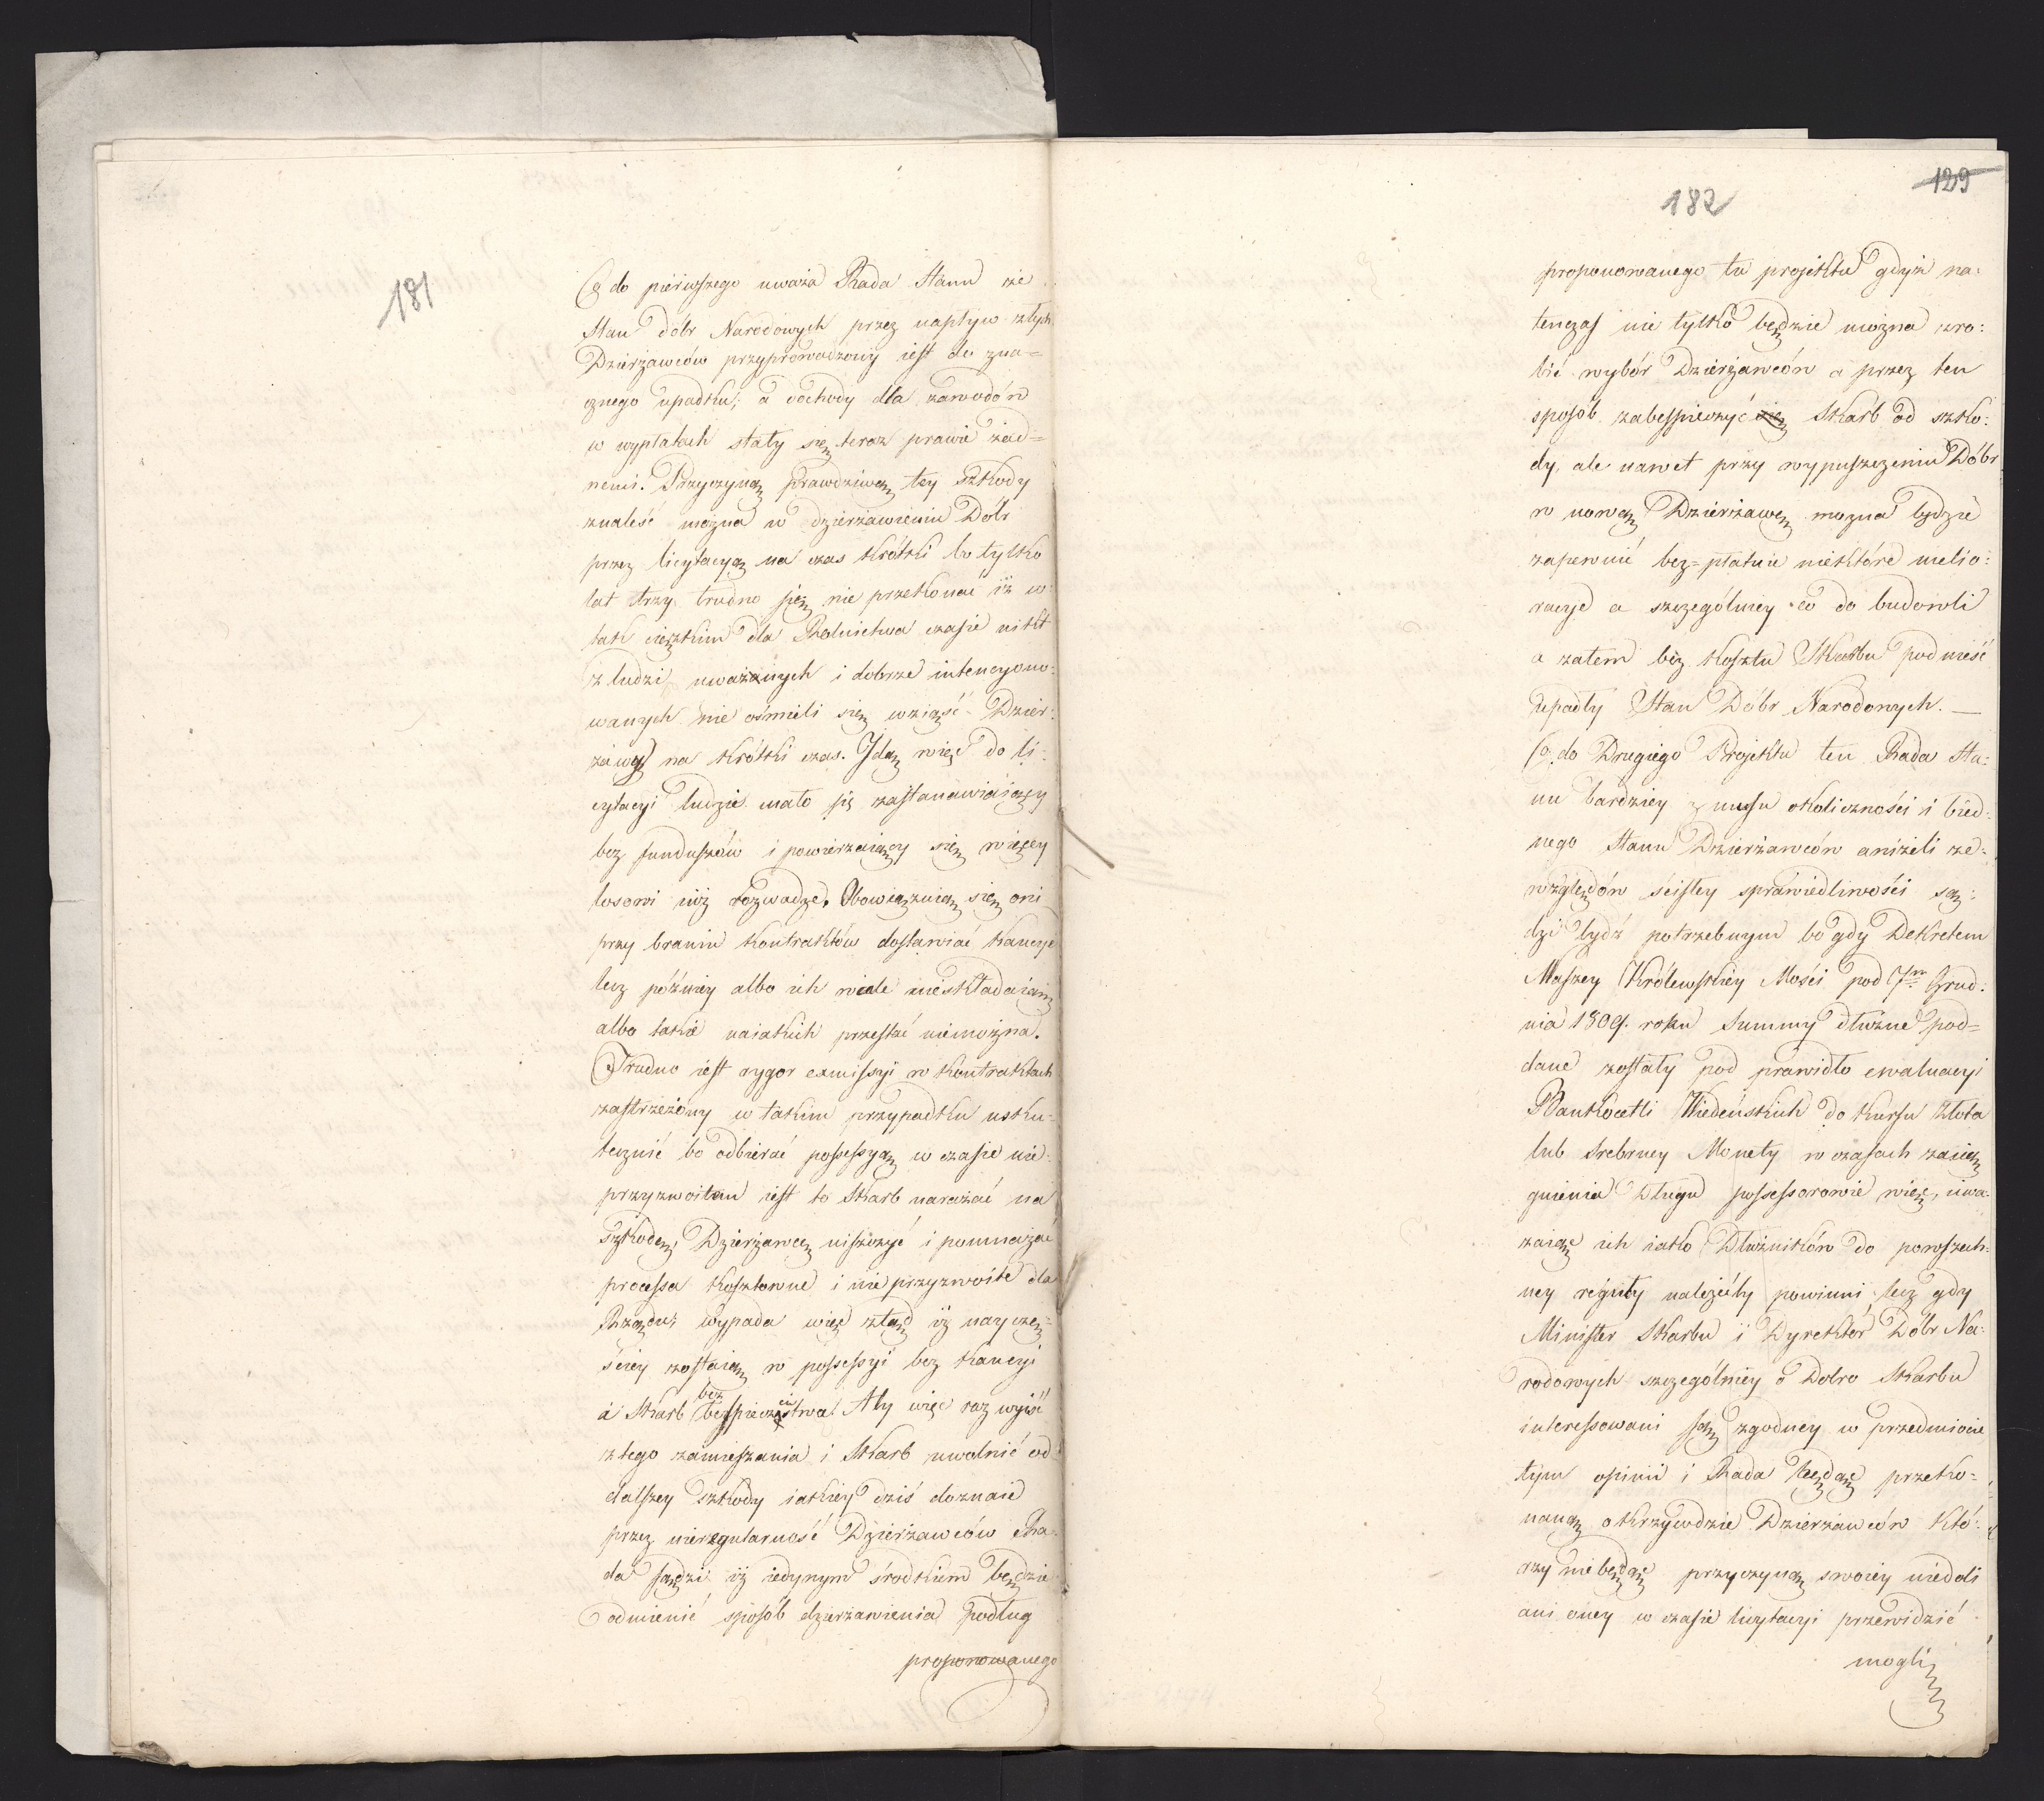 181
Co do pierwszego uważa Rada Stanu że
Stan dóbr Narodowych przez napływ złych
Dzierżawców przyprowadzony iest do zna=
cznego upadku; a dochody dla zawodów
w wypłatach stały się teraz prawie żad=
nemi. Przyczyną prawdziwą tey szkody
znaleść można w dzierżawieniu Dóbr
przez licytacyą na czas krótki bo tylko
lat trzy, trudno się nie przekonać iż w
tak cięzkim dla Rolnictwa czasie nikt
z ludzi uważnych i dobrze intencyono=
wanych nie ośmieli się wziąść Dzier:
żawę na krótki czas. Idą więc do li:
cytacyi ludzie mało się zastanawiaiący
bez funduszów i powierzaiący się więcey
losowi niż rozwadze. Obowięzuią się oni
przy braniu kontraktów dostawiać kaucye
lecz późniey albo ich wcale nieskładaią
albo takie naiakich przestać niemożna.
Trudno iest rygor exmissyi w kontraktach
zastrzeżony w takim przypadku usku=
tecznić bo odbierać possessyą w czasie nie:
przyzwoitem iest to Skarb narażać na
szkodę, Dzierżawcę niszczyć i pomnażać
processa kosztowne i nie przyzwoite dla
Rządu; wypada więc ztąd iż nayczę=
ściey zostaią w possessyi bez kaucyi
a Skarb bez bespieczeństwa. Aby więc raz wyiść
z tego zamieszania i Skarb uwolnić od
dalszey szkody iakiey dziś doznaie
przez nieregularność Dzierżawców Ra=
da sądzi iż iedynym środkiem będzie
odmienić sposób dzierżawienia podług
proponowanego
129
182
proponowanego tu projektu gdyż na:
tenczas nie tylko będzie można zro:
bić wybór Dzierżawców a przez ten
sposób zabespieczyć się Skarb od szko:
dy, ale nawet przy wypuszczeniu Dóbr
w nową Dzierżawę można będzie
zapewnić bez=płatnie niektóre melio:
racye a szczególniey co do budowli
a zatem bez kosztu Skarbu podnieść
upadły Stan Dóbr Narodowych. —
Co do Drugiego Projektu ten Rada Sta:
nu bardziey z musu okoliczności i bied:
nego stanu Dzierżawców aniżeli ze=
względów ścisłey sprawiedliwości są:
dzi bydź potrzebnym bo gdy Dekretem
Waszey Królewskiey Mości pod 7m. Grud:
nia 1809. roku Summy dłużne pod=
dane zostały pod prawidło ewaluacyi
Bankocetli Wiedeńskich do kursu złota
lub srebrney Monety w czasach zacią
gnienia długu possessorowie więc, uwa:
żaiąc ich iako Dłużników do powszech:
ney reguły należećby powinni, lecz gdy
Minister Skarbu i Dyrektor Dóbr Na:
rodowych szczególniey o Dobro Skarbu
interessowani są zgodney w przedmiocie
tym opinii i Rada będąc przeko=
naną o krzywdzie Dzierżawców któ:
rzy nie będąc przyczyną swoiey niedoli
ani oney w czasie licytacyi przewidzić
mogli